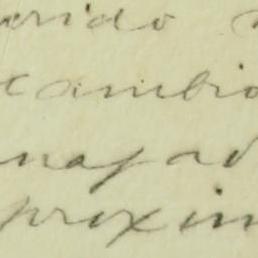 erido
cambio
napad
proxim